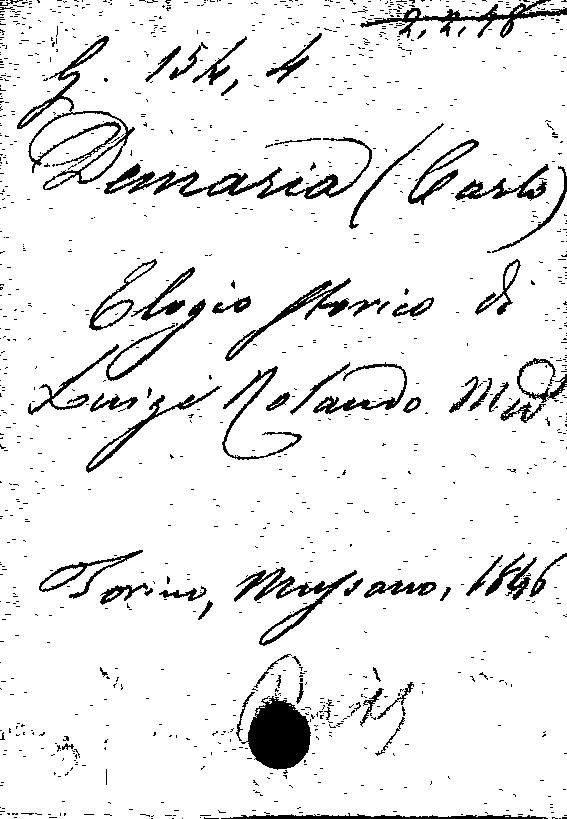 2.2.48
G. 154, 4
Demaria (Carlo)
Elogio storico di
Luigi Rolando Med.
Torino, Mussano, 1846